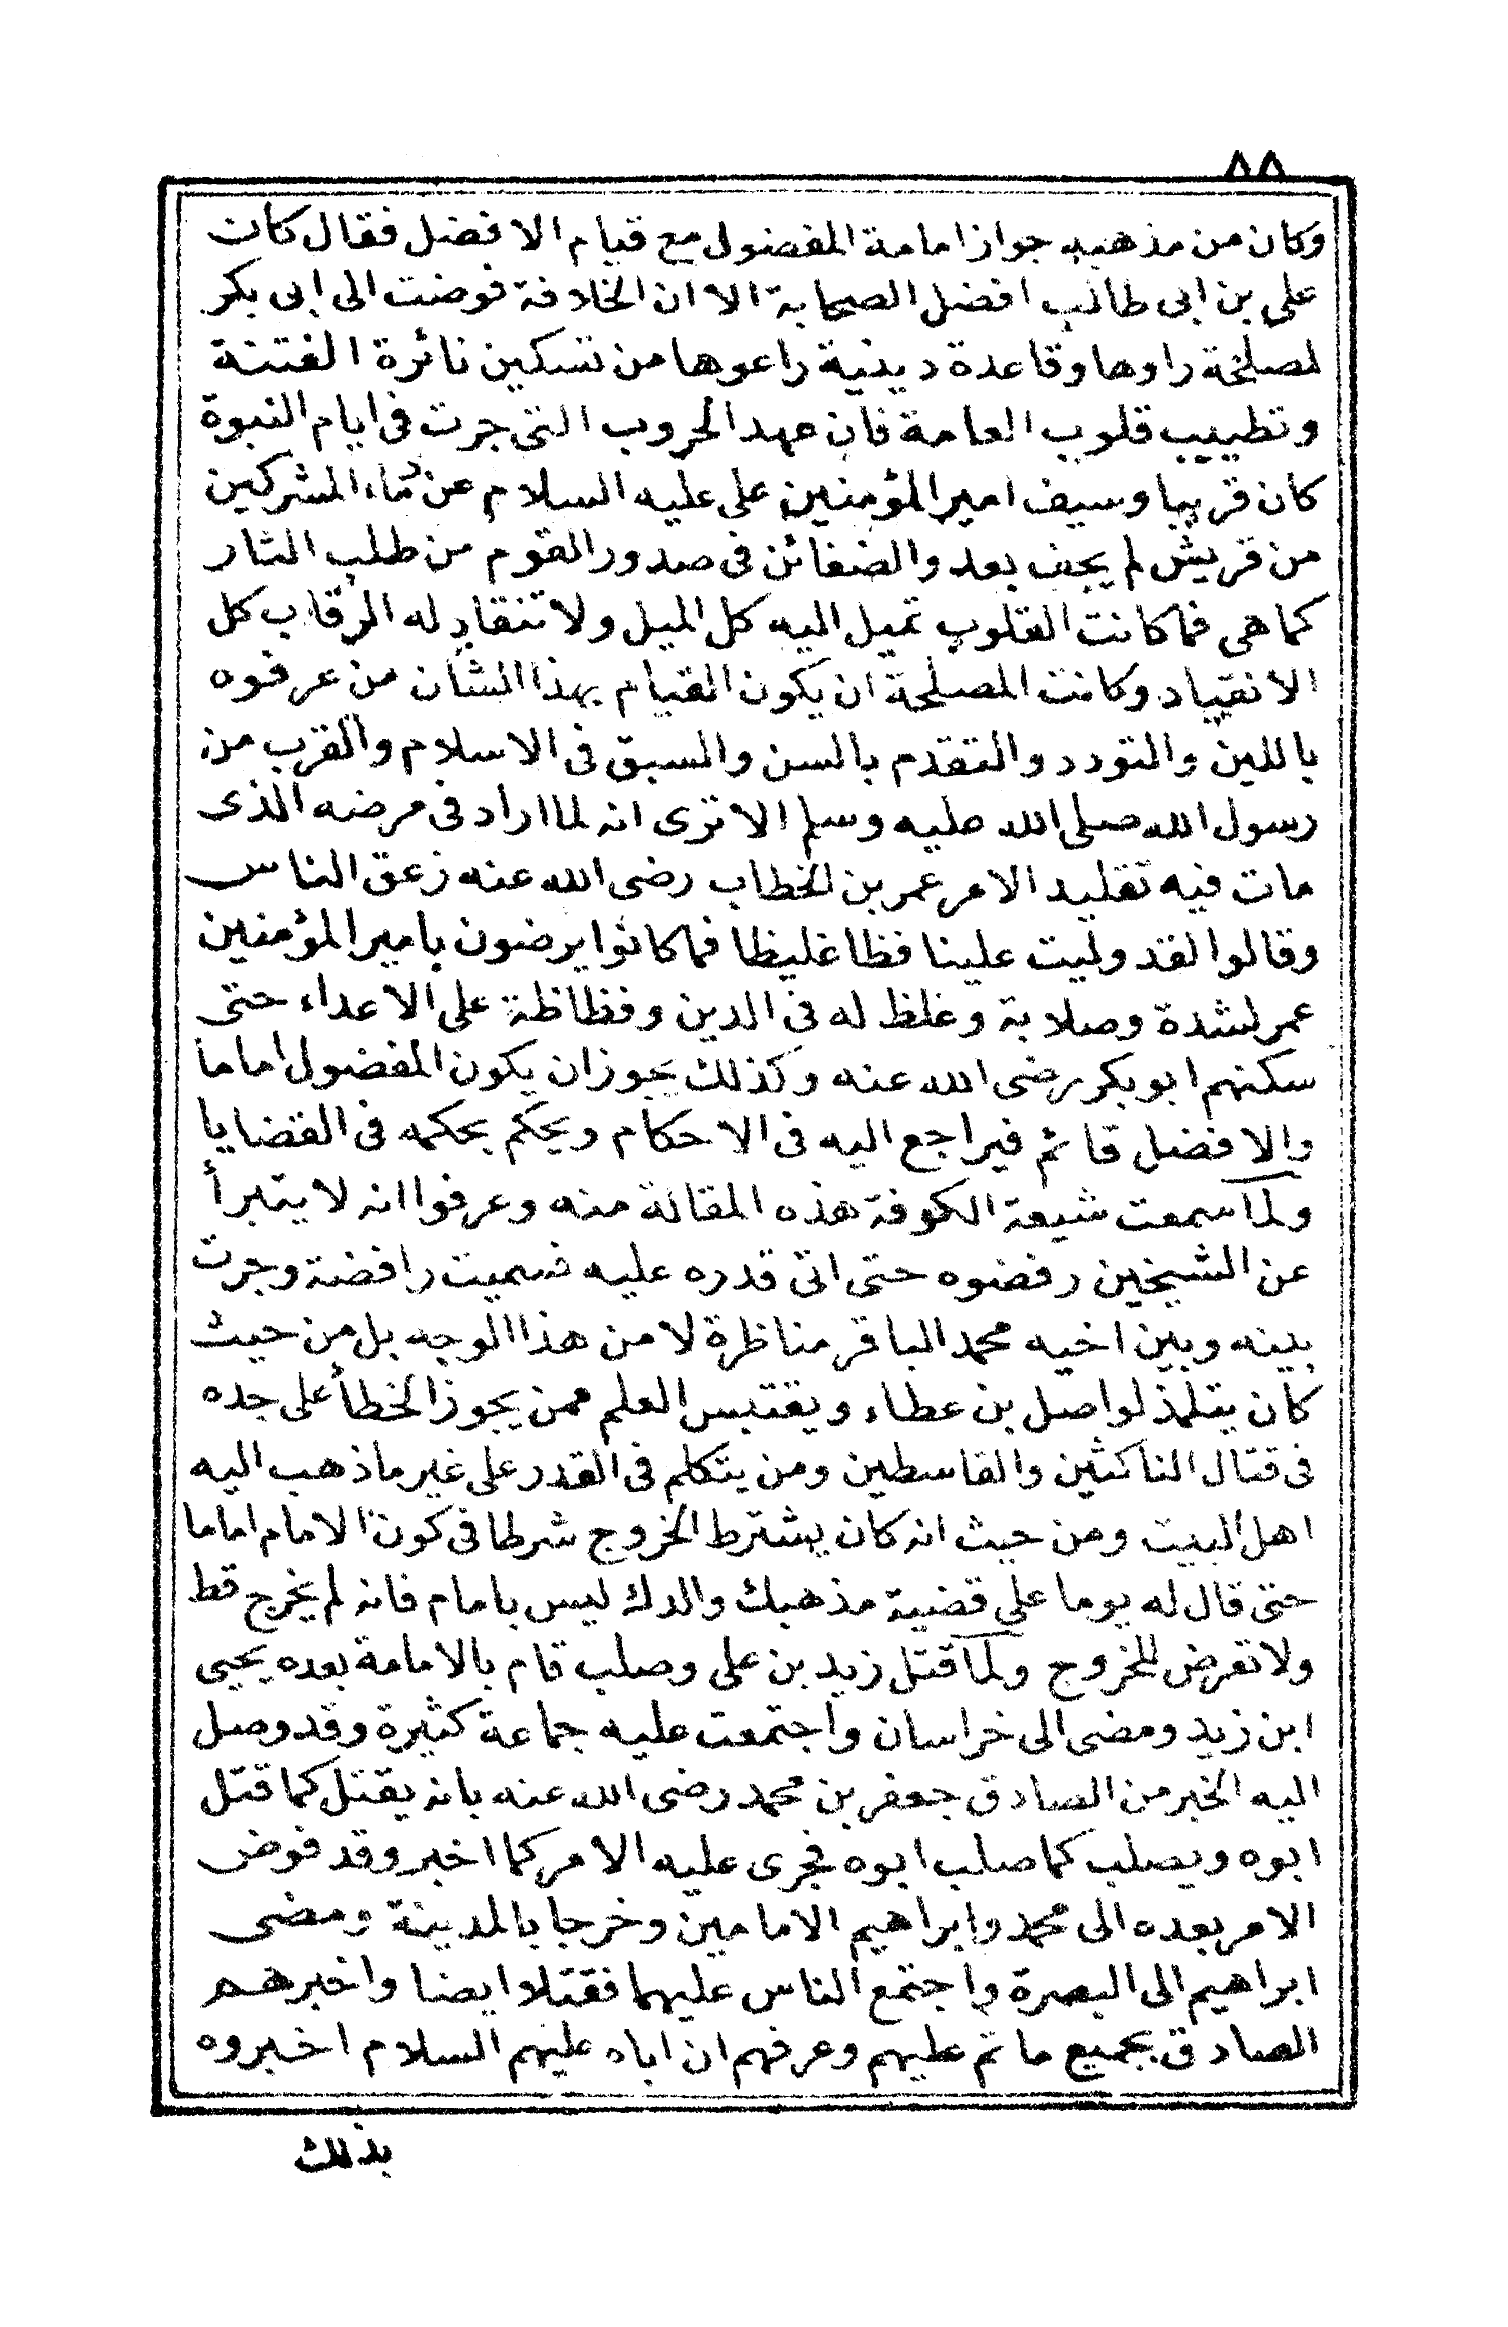 ٨٨
وكان من مذهبه جواز امامة المفضول مع قيام الافضل فقال كان
على بن ابى طالب افضل الصحابة الا ان الخلافة فوضت الى ابى بكر
لمصلحة راوها وقاعدة دينية راعوها من تسكين نائرة الفتنة
وتطييب قلوب العامة فان عهد الحروب التى جرت فى ايام النبوة
كان قريبا وسيف امير المؤمنين على عليه السلام عن دماء المشركين
من قريش لم يجف بعد والضغائن فى صدور القوم من طلب الثار
كما هى فما كانت القلوب تميل اليه كل الميل ولا تنقاد له الرقاب كل
الانقياد وكانت المصلحة ان يكون القيام بهذا الشان من عرفوه
باللين والتودد والتقدم بالسن والسبق فى الاسلام والقرب من
رسول الله صلى الله عليه وسلم الا ترى انه لما اراد فى مرضه الذى
مات فيه تقليد الامر عمر بن الخطاب رضى الله عنه زعق الناس
وقالوا لقد وليت علينا فظا غليظا فما كانوا يرضون بامير المؤمنين
عمر لشدة وصلابة وغلظ له فى الدين وفظاظة على الاعداء حتى
سكنهم ابو بكر رضى الله عنه وكذلك يجوز ان يكون المفضول اماما
والافضل قائم فيراجع اليه فى الاحكام ويحكم بحكمه فى القضايا
ولما سمعت شيعة الكوفة هذه المقالة منه وعرفوا انه لا يتبرأ
عن الشيخين رفضوه حتى اتى قدره عليه فسميت رافضة وجرت
بينه وبين اخيه محمد الباقر مناظرة لا من هذا الوجه بل من حيث
كان يتلمذ لواصل بن عطاء ويقتبس العلم ممن يجوز الخطأ على جده
فى قتال الناكثين والقاسطين ومن يتكلم فى القدر على غير ما ذهب اليه
اهل البيت ومن حيث انه كان يشترط الخروج شرطا فى كون الامام اماما
حتى قال له يوما على قضية مذهبك والدك ليس بامام فانه لم يخرج قط
ولا تعرض للخروج ولما قتل زيد بن على وصلب قام بالامامة بعده يحيى
ابن زيد ومضى الى خراسان واجتمعت عليه جماعة كثيرة وقد وصل
اليه الخبر من الصادق جعفر بن محمد رضى الله عنه بانه يقتل كما قتل
ابوه ويصلب كما صلب ابوه فجرى عليه الامر كما اخبر وقد فوض
الامر بعده الى محمد وابراهيم الامامين وخرجا بالمدينة ومضى
ابراهيم الى البصرة واجتمع الناس عليهما فقتلا ايضا واخبرهم
الصادق بجميع ما تم عليهم وعرفهم ان اباه عليهم السلام اخبروه
بذلك